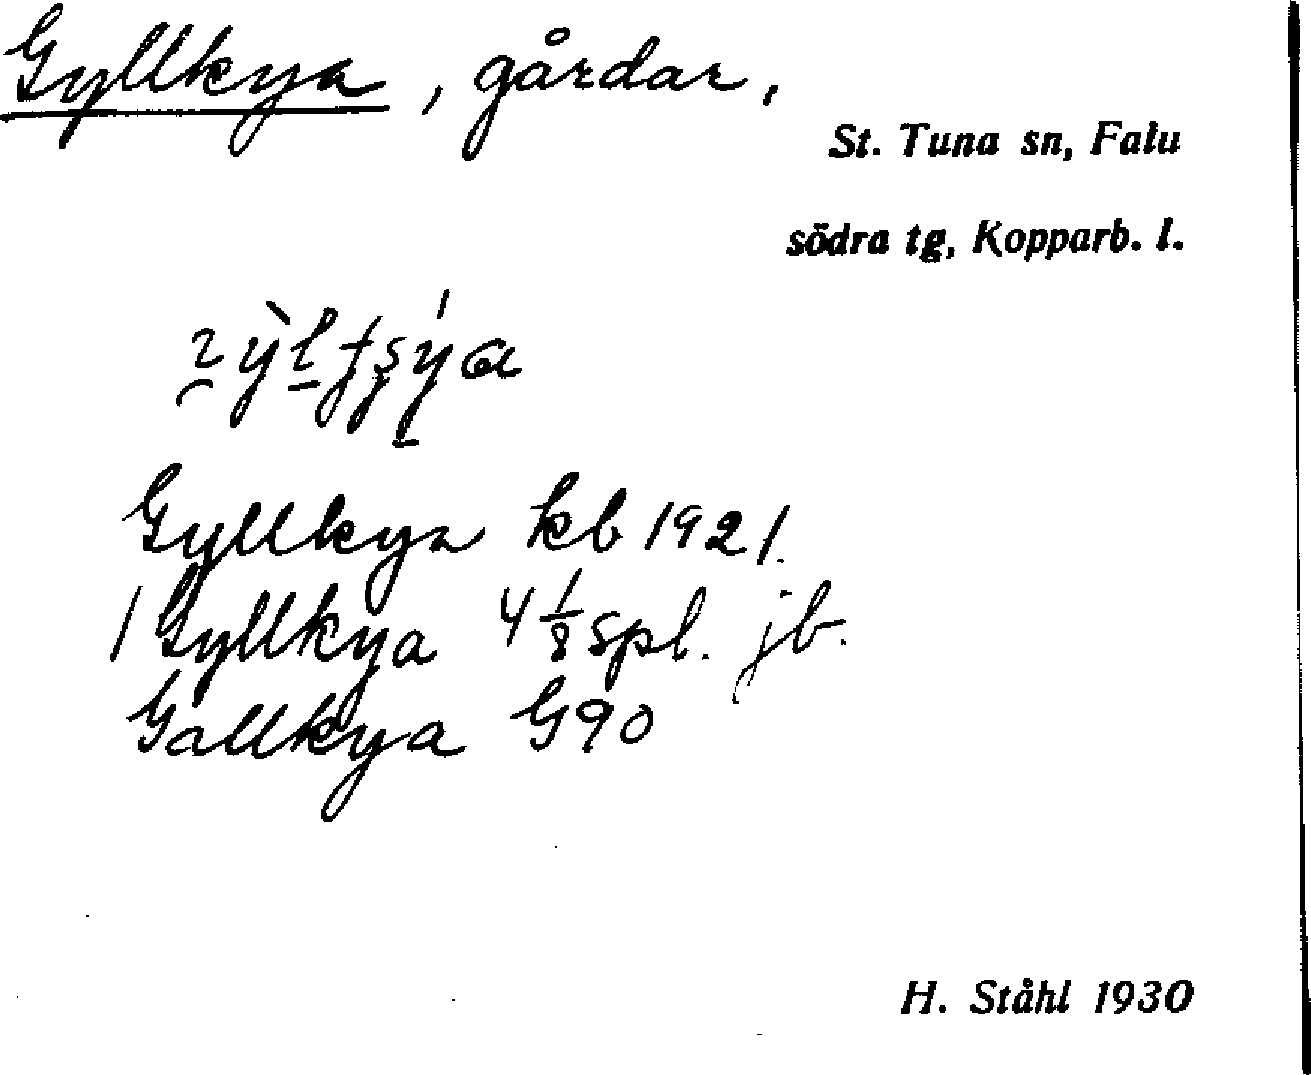 Gyllkya, gårdar,
St. Tuna sn, Falu
södra tg, Kopparb. l.
Gyllkya kb 1921.
1 Gyllkya 4 1/8 spl. jb.
Gallkya G90
H. Ståhl 1930